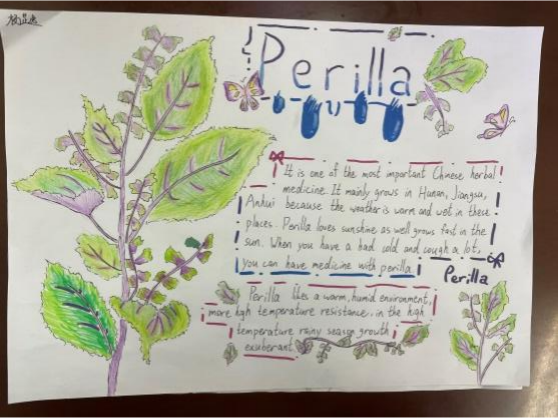 Perilla
It is one of the most important Chinese herbal
medicine. It mainly grows in Hunan, Jiangsu,
Anhui because the weather is warm and wet in these
places. Perilla loves sunshine as well grows fast in the
sun. When you have a bad cold and cough a lot,
you can have medicine with perilla.
Perilla
Perilla likes a warm, humid environment,
more high temperature resistance, in the high
temperature rainy season growth
exuberant